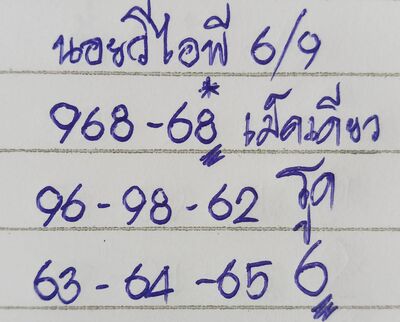 นอยวีไอพี 6/9
968-68* เม็ดเดียว
96-98-62 รูด
63-64-65 6